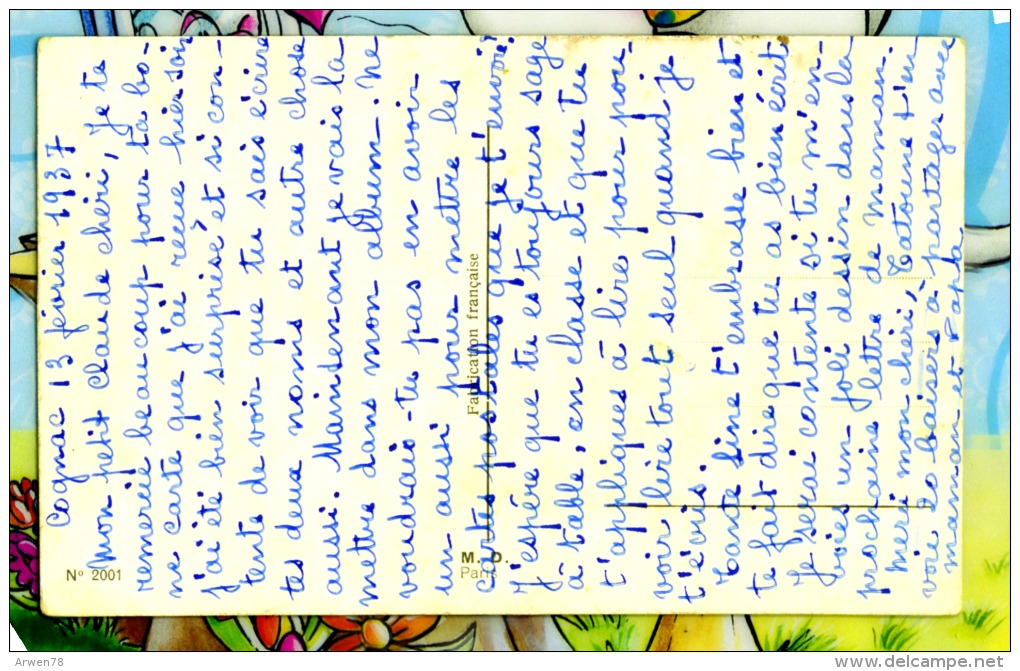 Cognac 13 février 1937
Mon petit Claude chéri, Je te
remercie beaucoup pour ta bo-
ne carte que j'ai reçue hier soir
j'ai été bien surprise et si con-
tente de voir que tu sais écrire
tes deux noms et autre chose
aussi. Maintenant je vais la
mettre dans mon album. Ne
voudrais-tu pas en avoir
un aussi pour mettre les
cartes postales que je t'envoie?
J'espère que tu es toujours sage
à table, en classe et que tu
t'appliques à lire pour pou-
voir lire tout seul quand je
t'écris.
Tante Sime t'embrasse bien et
te fait dire que tu as bien écrit
Je serai contente si tu m'en-
voies un joli dessin dans la
prochaine lettre de maman.
Merci mon chéri, Tatoune t'en
voie 20 baisers à partager avec
maman et Papa
Fabrication française
M. D.
Paris
Nº 2001
Arwen78
www.delcampe.net